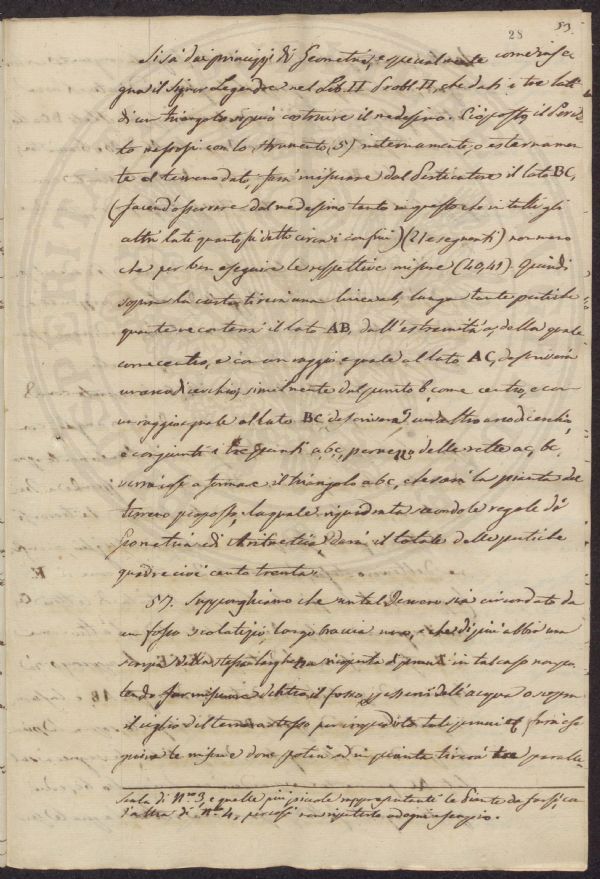 28 53.
Si sà dai principj di Geometria, e specialmente come inse-
gna il Signor Legendre nel Lib. II Probl. II, che dati i tre lati
di un triangolo si può costruire il medesimo. Ciò posto, il Perito
con lo strumento, (5) internamente, o esternamen-
te al terreno dato, farà misurare dal Perticatore il lato BC,
(facend'osservare dal medesimo tanto in questo che in tutti gli
altri lati quanto si è detto circa i confini) (21 e seguenti) non meno
che per ben eseguire le rispettive misure (40,41). Quindi
sopra la carta tirerà una linea ab, lunga tante pertiche
quante ne conterrà il lato AB, dall'estremità a, della quale
come centro, e con un raggio eguale al lato AC, descriverà
un arco di cerchio, similmente dal punto b, come centro, e con
un raggio eguale al lato BC descriverà un altro arco di cerchio,
e congiunti i tre punti a, b, c, per mezzo delle rette ac, bc,
verrà così a formare il triangolo abc, che sarà la pianta del
terreno proposto, la quale riquadrata secondo le regole di
Geometria e di Aritmetica darà il totale delle pertiche
quadre cioè cento trenta.
57. Supponghiamo che un tal Terreno sia circondato da
un fosso largo braccia, e che di più abbia una
siepe della stessa larghezza di pruni in tal caso non po-
tendo far misurare dietro il fosso, essendo dell'acqua o sopra
il ciglio del terreno stesso per impedirlo tali pruni farà ese-
guire le misure dove potrà ed in pianta tirerà paralle-
Scala di N.ro 3, e quelle più piccole rappresentanti le Piante da farsi, co
l'altra di N.ro 4, per così non ripeterlo ad ogni esempio.